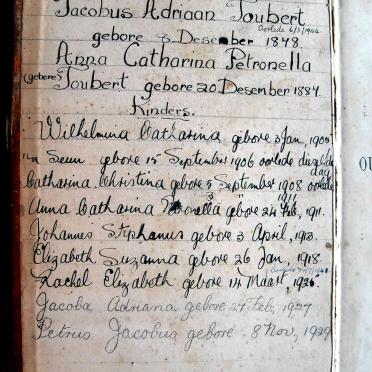 Jacobus Adriaan Joubert
Oorlede 6/3/1944
gebore 8 Desember 1878.
Anna Catharina Petronella
(gebore) Joubert gebore 20 Desember 1884.
Kinders.
Wilhelmina Catharina gebore 3 Jan, 1905
'n Seun gebore 15 September 1906 oorlede dieselfde dag
Catharina Christina gebore 5 September 1908 oorlede 1911
Anna Catharina Petronella gebore 24 Feb, 1911.
Johannes Stephanus gebore 3 April, 1913.
Elizabeth Suzanna gebore 26 Jan, 1918
Rachel Elizabeth gebore 14 Maart, 1926.
Jacoba Adriana gebore 27 Feb, 1927
Petrus Jacobus gebore 8 Nov, 1929
OU